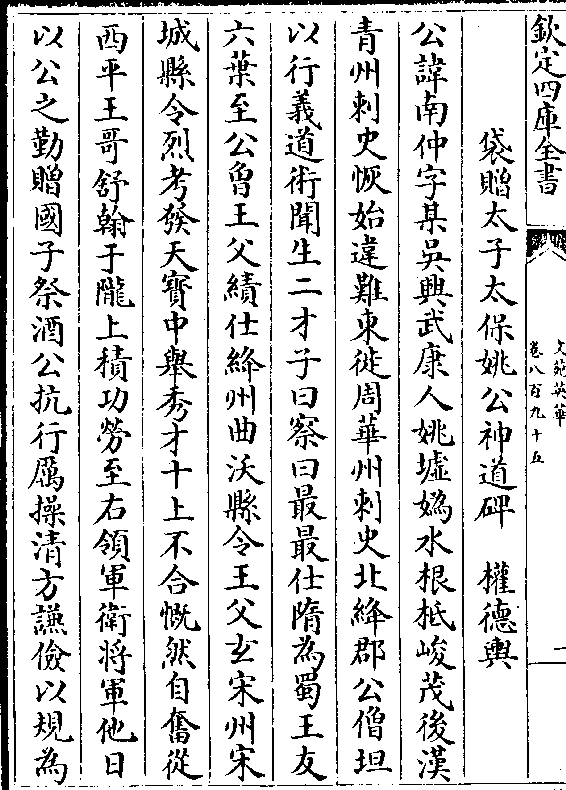 欽定四庫全書
文苑英華
卷八百九十五
一
袋贈太子太保姚公神道碑　權德輿
公諱南仲字某吳興武康人姚墟嬀水根柢峻茂後漢
青州刺史恢始違難東徙周華州刺史北絳郡公僧坦
以行義道術聞生二才子曰察曰最最仕隋為蜀王友
六葉至公曾王父績仕絳州曲沃縣令王父玄宋州宋
城縣令烈考發天寶中舉秀才十上不合慨然自奮從
西平王哥舒翰于隴上積功勞至右領軍衛將軍他日
以公之勤贈國子祭酒公抗行厲操清方謙儉以規為